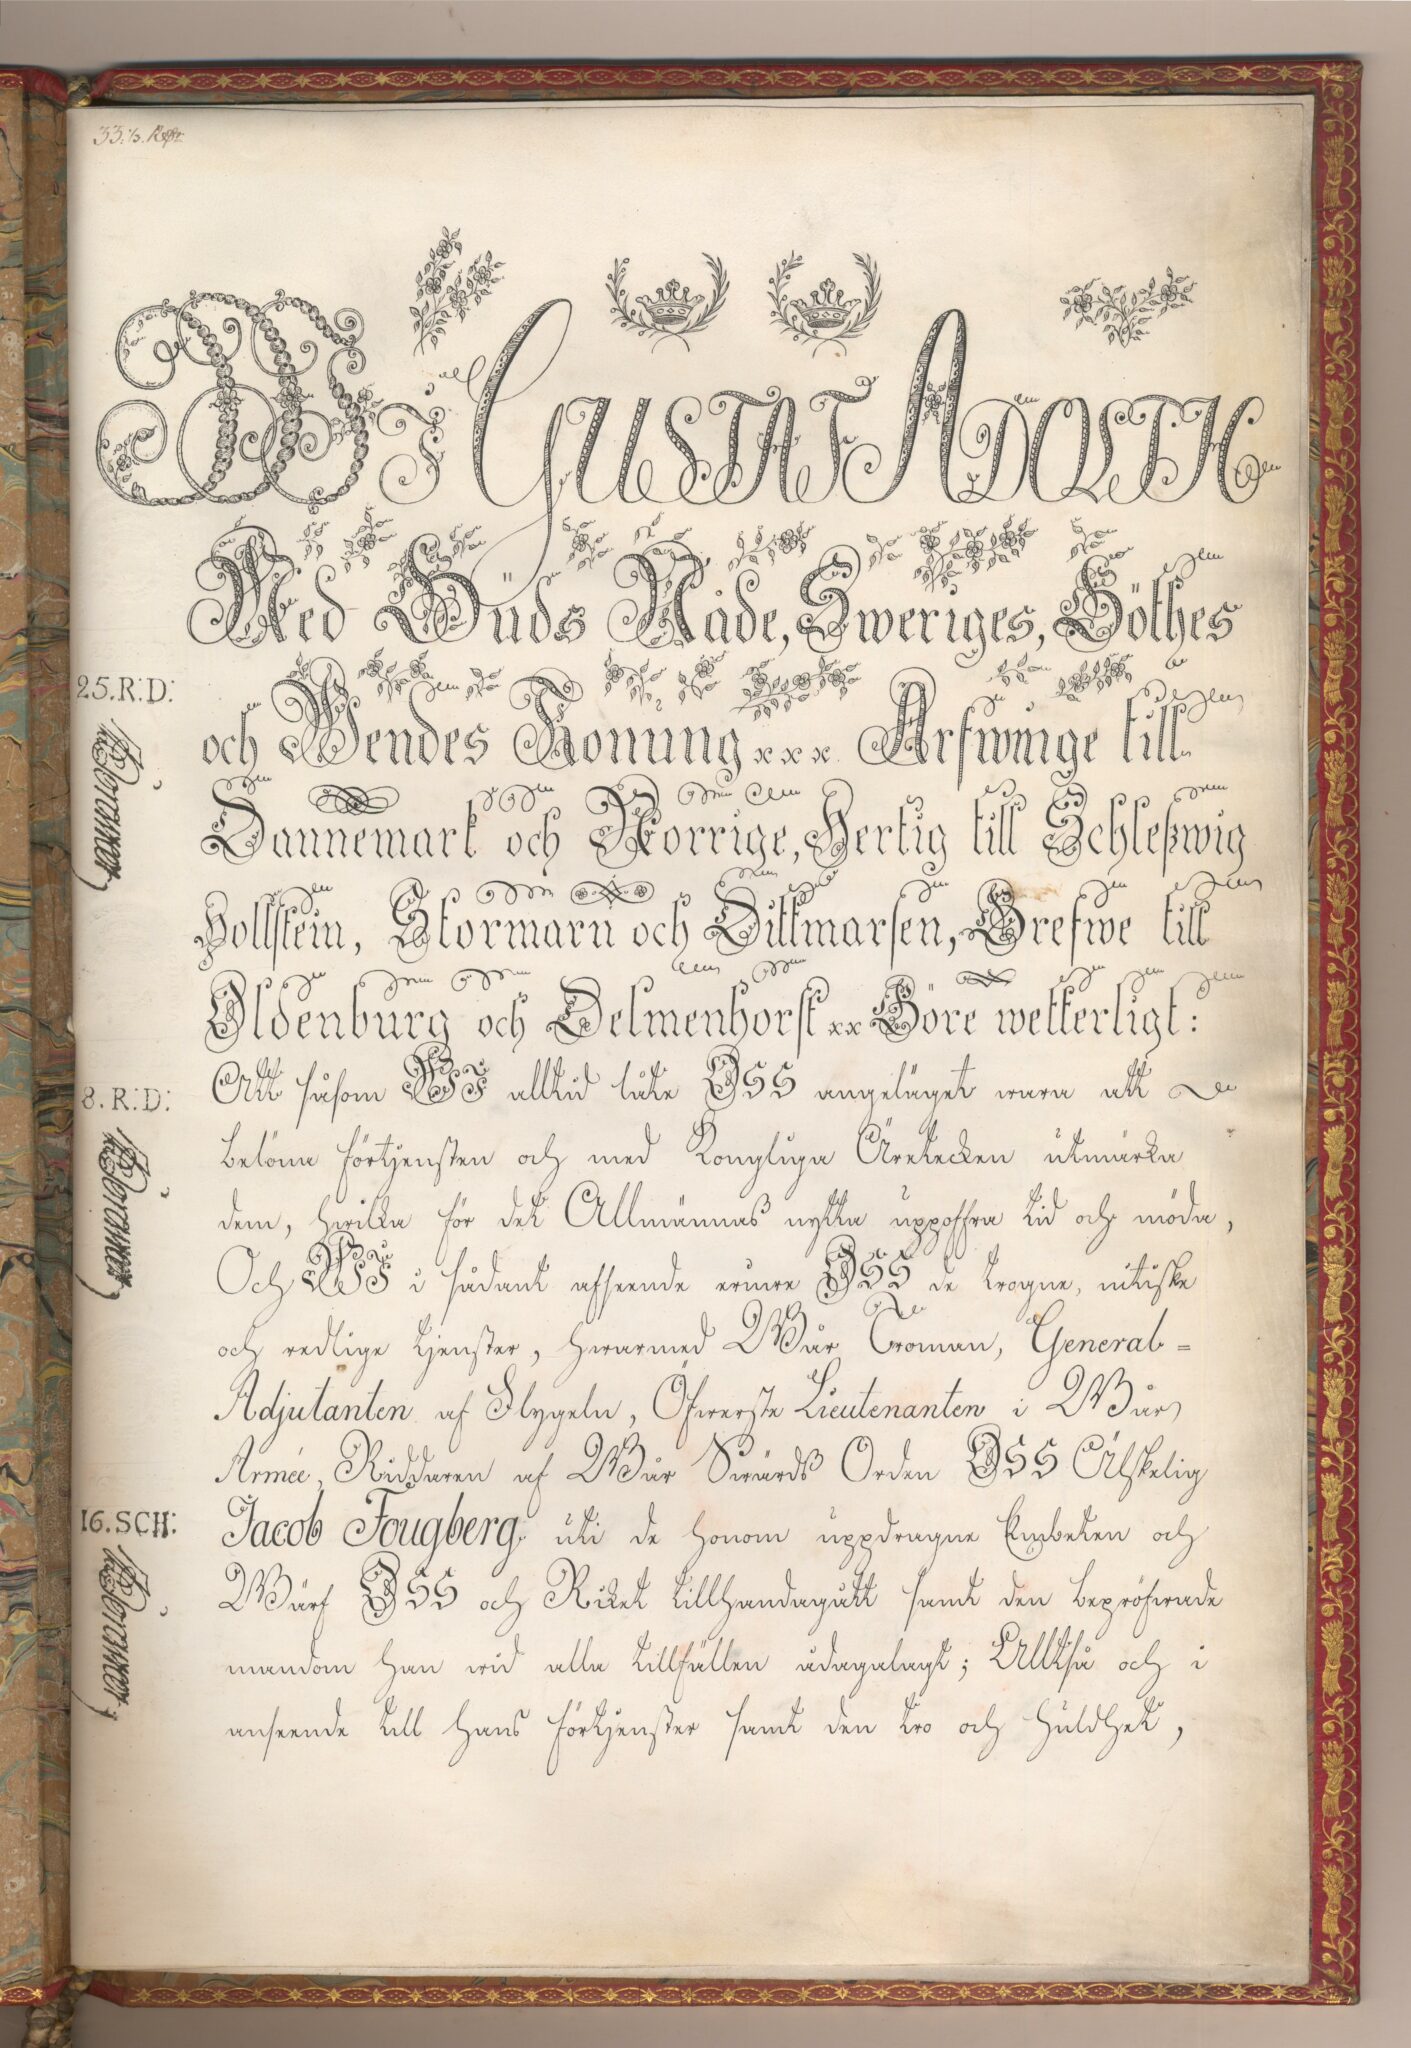 33:⅓. Rdr
WI GUSTAF ADOLPH
Med Güds Nåde, Sweriges, Göthes
25.R:D:
och Wendes Konung xxx Arfwinge till
Dannemark och Norrige, Hertig till Schleßwig
Hollstein, Stormarn och Dittmarsen, Grefwe till
Oldenburg och Delmenhorst xx Göre wetterligt:
8.R:D:
Att såsom WI alltid låte OSS angeläget wara att
belöna förtjensten och med Kongliga Äretecken utmärka
dem, hwilka för det Allmännas nytta uppoffra tid och möda,
Och WI i sådant afseende erinre OSS de trogne, nitiske
och redlige tjenster, hwarmed Wår Troman, General-
Adjutanten af Flygeln, Öfwerste Lieutenanten i Wår
Armée, Riddaren af Wår Swärds Orden OSS Älskelig
16.SCH:
Jacob Fougberg, uti de honom uppdragne Embeten och
Wärf OSS och Riket tillhandagått samt den bepröfwade
mandom han wid alla tillfällen ådagalagt; Alltså och i
anseende till hans förtjenster samt den tro och huldhet,